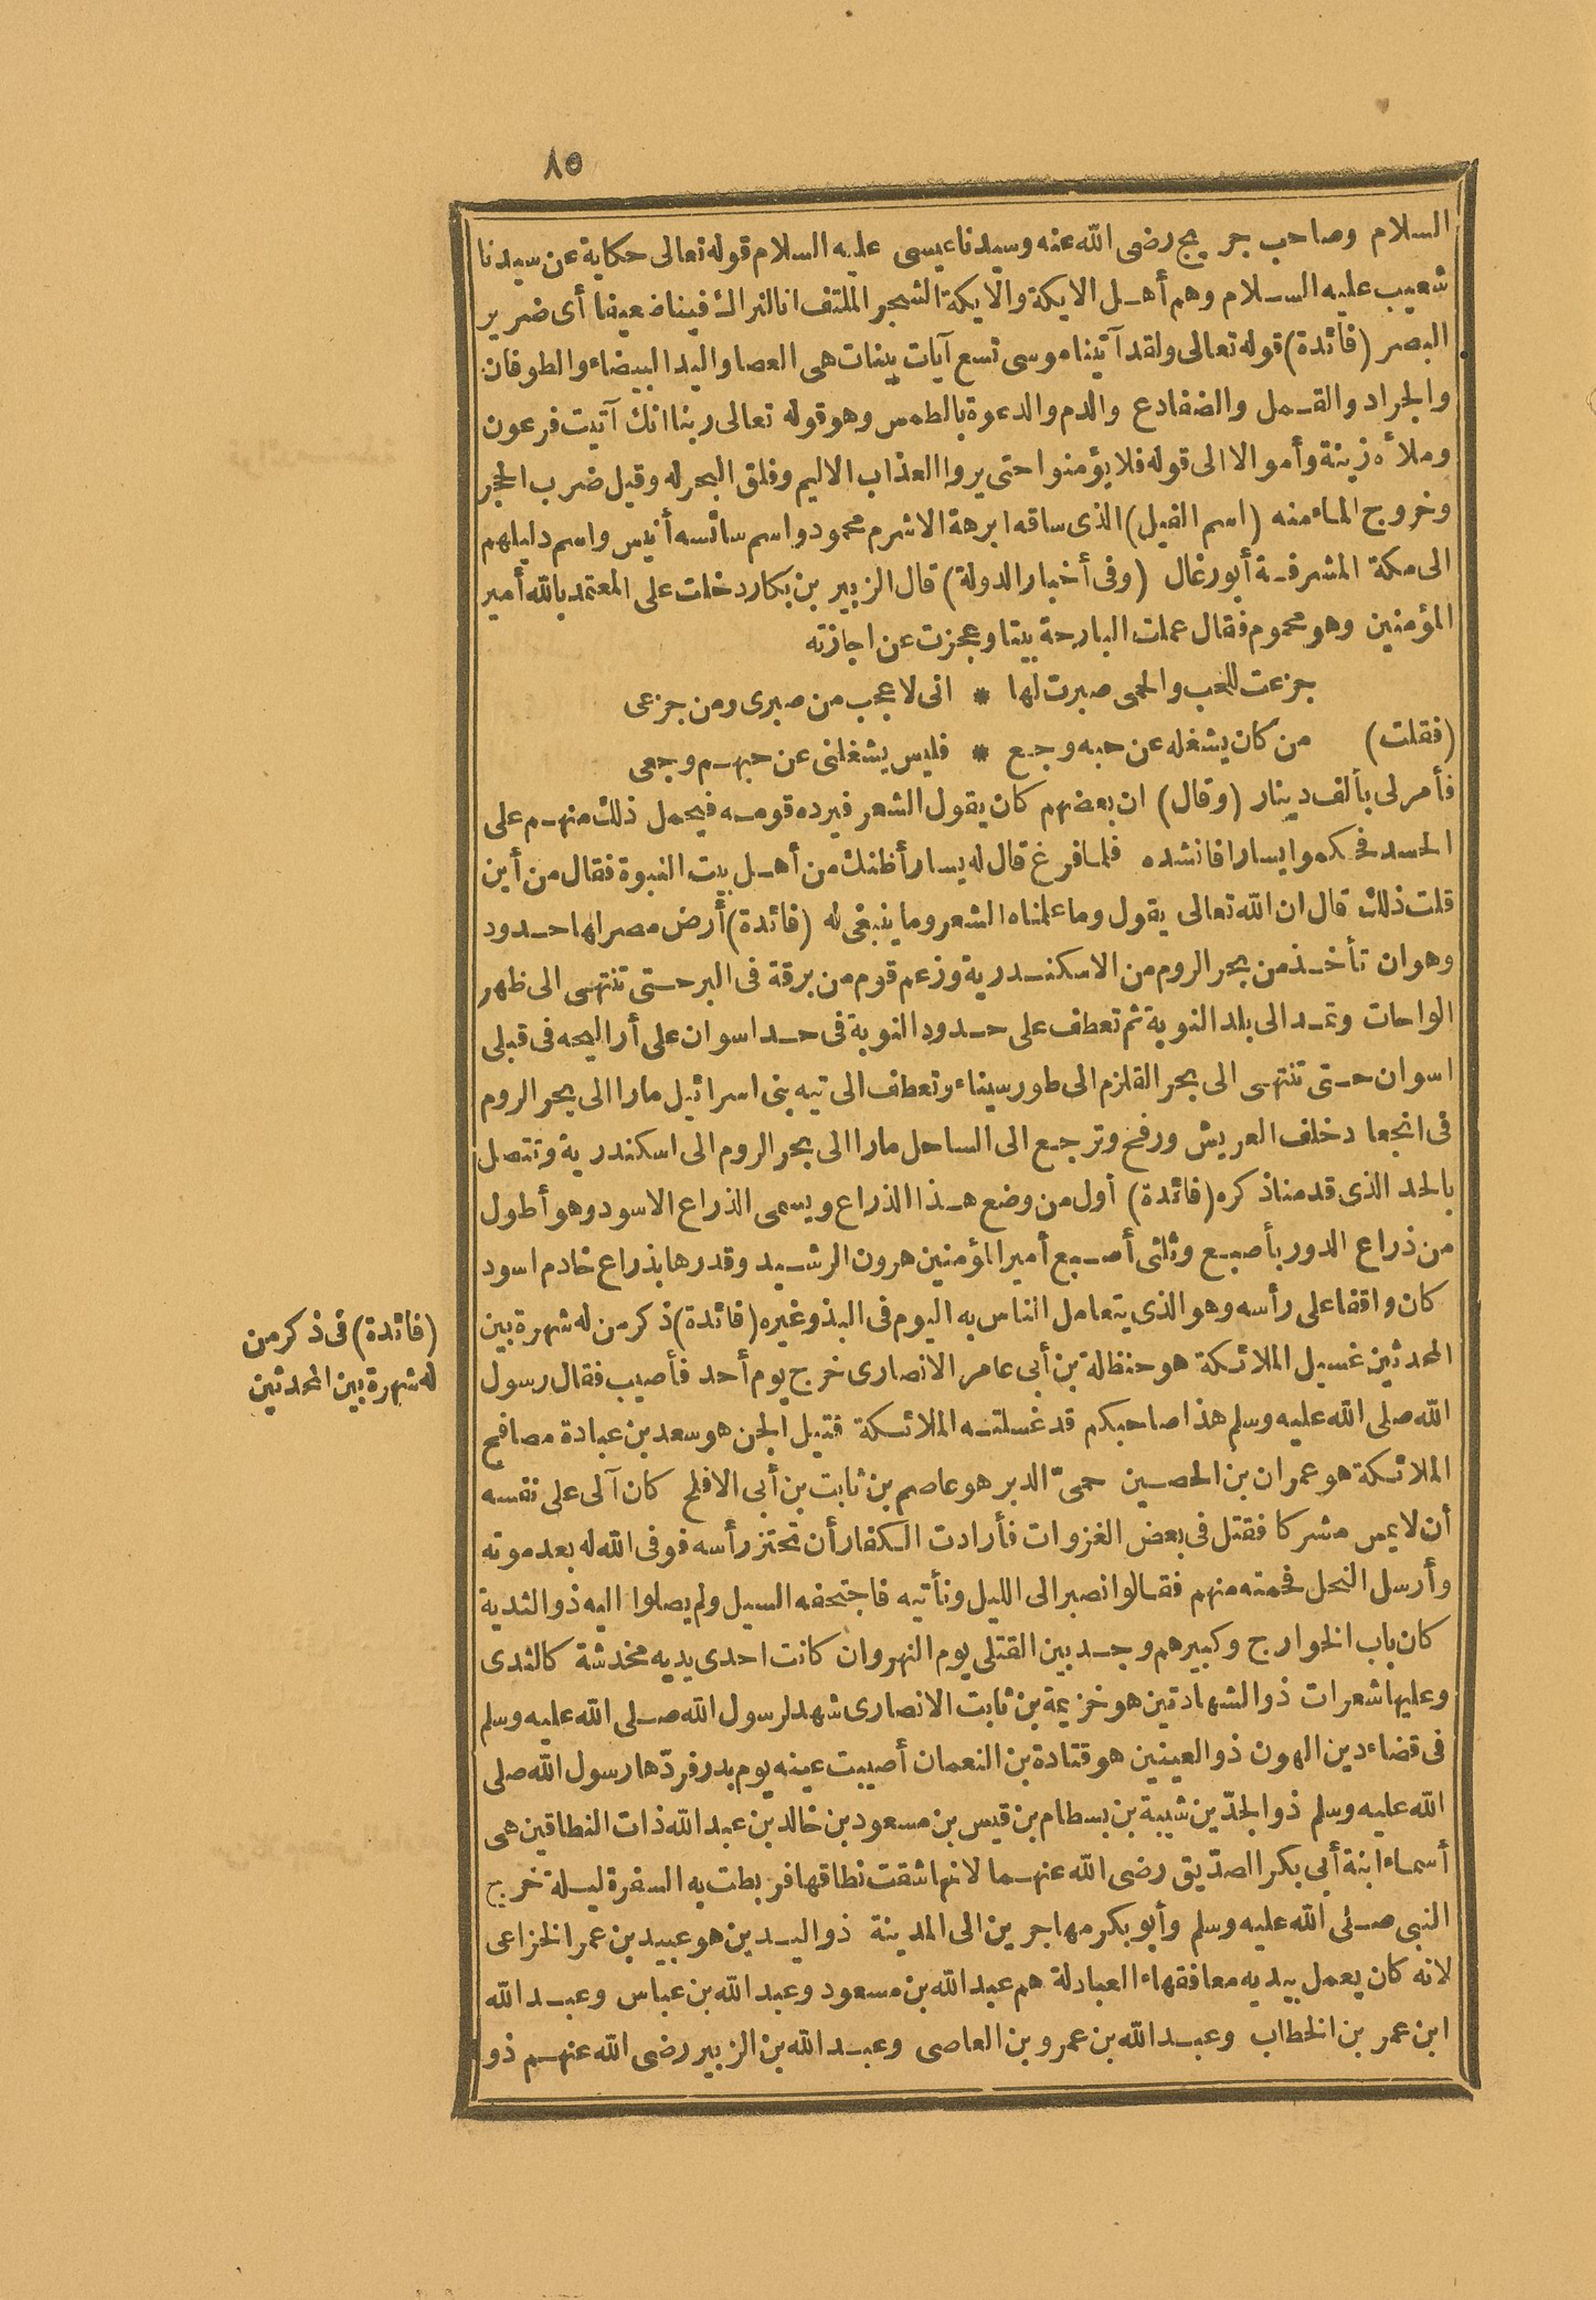 ٨٥
السلام وصاحب جريج رضى الله عنه وسيدنا عيسى عليه السلام قوله تعالى حكاية عن سيدنا
شعيب عليه السلام وهم أهل الايكة والايكة الشجر الملتف انا لنراك فينا ضعيفا أى ضرير
البصر (فائدة) قوله تعالى ولقد آتينا موسى تسع آيات بينات هى العصا واليد البيضاء والطوفان
والجراد والقمل والضفادع والدم والدعوة بالطمس وهو قوله تعالى ربنا انك آتيت فرعون
وملأه زينة وأموالا الى قوله فلا يؤمنوا حتى يروا العذاب الاليم وفلق البحر له وقيل ضرب الحجر
وخروج الماء منه (اسم الفيل) الذى ساقه ابرهة الاشرم محمود واسم سائسه أنيس واسم دليلهم
الى مكة المشرفة أبو رغال (وفى أخبار الدولة) قال الزبير بن بكار دخلت على المعتمد بالله أمير
المؤمنين وهو محموم فقال عملت البارحة بيتا وعجزت عن اجازته
جزعت للحب والحمى صبرت لها * انى لاعجب من صبرى ومن جزعى
(فقلت) من كان يشغله عن حبه وجع * فليس يشغلنى عن حبهم وجعى
فأمر لى بألف دينار (وقال) ان بعضهم كان يقول الشعر فيرده قومه فيحمل ذلك منهم على
الحسد فحكموا يسارا فانشده فلما فرغ قال له يسار أظنك من أهل بيت النبوة فقال من أين
قلت ذلك قال ان الله تعالى يقول وما علمناه الشعر وما ينبغى له (فائدة) أرض مصر لها حدود
وهو ان تأخذ من بحر الروم من الاسكندرية وزعم قوم من برقة فى البر حتى تنتهى الى ظهر
الواحات وتمد الى بلد النوبة ثم تعطف على حدود النوبة فى حد اسوان على أر البحه فى قبلى
اسوان حتى تنتهى الى بحر القلزم الى طور سيناء وتعطف الى تيه بنى اسرائيل مارا الى بحر الروم
فى انجعا دخلف العريش ورفح وترجع الى الساحل مارا الى بحر الروم الى اسكندرية وتتصل
بالحد الذى قدمنا ذكره (فائدة) أول من وضع هذا الذراع ويسمى الذراع الاسود وهو أطول
من ذراع الدور بأصبع وثلثى أصبع أمير المؤمنين هرون الرشيد وقدرها بذراع خادم اسود
كان واقفا على رأسه وهو الذى يتعامل الناس به اليوم فى البذ وغيره (فائدة) ذكر من له شهرة بين
المحدثين غسيل الملائكة هو حنظلة بن أبى عامر الانصارى خرج يوم أحد فأصيب فقال رسول
الله صلى الله عليه وسلم هذا صاحبكم قد غسلته الملائكة قتيل الجن هو سعد بن عبادة مصافح
الملائكة هو عمران بن الحصين حمىّ الدبر هو عاصم بن ثابت بن أبى الافلح كان آلى على نفسه
أن لا يمس مشركا فقتل فى بعض الغزوات فأرادت الكفار أن تحتز رأسه فوفى الله له بعد موته
وأرسل النحل فحمته منهم فقالوا نصبر الى الليل ونأتيه فاجتحفه السيل ولم يصلوا اليه ذو الثدية
كان باب الخوارج وكبيرهم وجد بين القتلى يوم النهروان كانت احدى يديه مخدشة كالثدى
وعليها شعرات ذو الشهادتين هو خزيمة بن ثابت الانصارى شهد لرسول الله صلى الله عليه وسلم
فى قضاء دين الهون ذو العينين هو قتادة بن النعمان أصيبت عينه يوم بدر فردّها رسول الله صلى
الله عليه وسلم ذو الجدّين شيبة بن بسطام بن قيس بن مسعود بن خالد بن عبد الله ذات النطاقين هى
أسماء ابنة أبى بكر الصدّيق رضى الله عنهما لانها شقت نطاقها فربطت به السفرة ليلة خرج
النبى صلى الله عليه وسلم وأبو بكر مهاجرين الى المدينة ذو اليدين هو عبيد بن عمر الخزاعى
لانه كان يعمل بيديه معا فقهاء العبادلة هم عبد الله بن مسعود وعبد الله بن عباس وعبد الله
ابن عمر بن الخطاب وعبد الله بن عمرو بن العاصى وعبد الله بن الزبير رضى الله عنهم ذو
(فائدة) فى ذكر من
له شهرة بين المحدثين